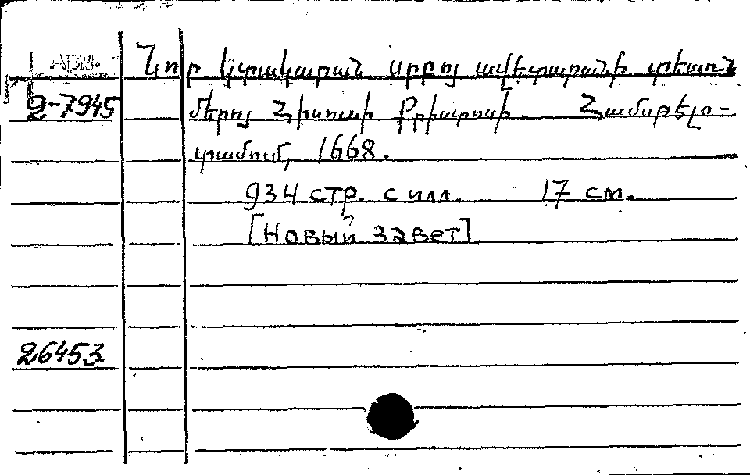 Նոր կտակարան սրբոյ աւետարանի տեառն
2-7945 մերոյ Յիսուսի Քրիստոսի. Յամսթելօ-
տամում, 1668.
934 стр. с илл. 17 см.
[Новый завет]
26453